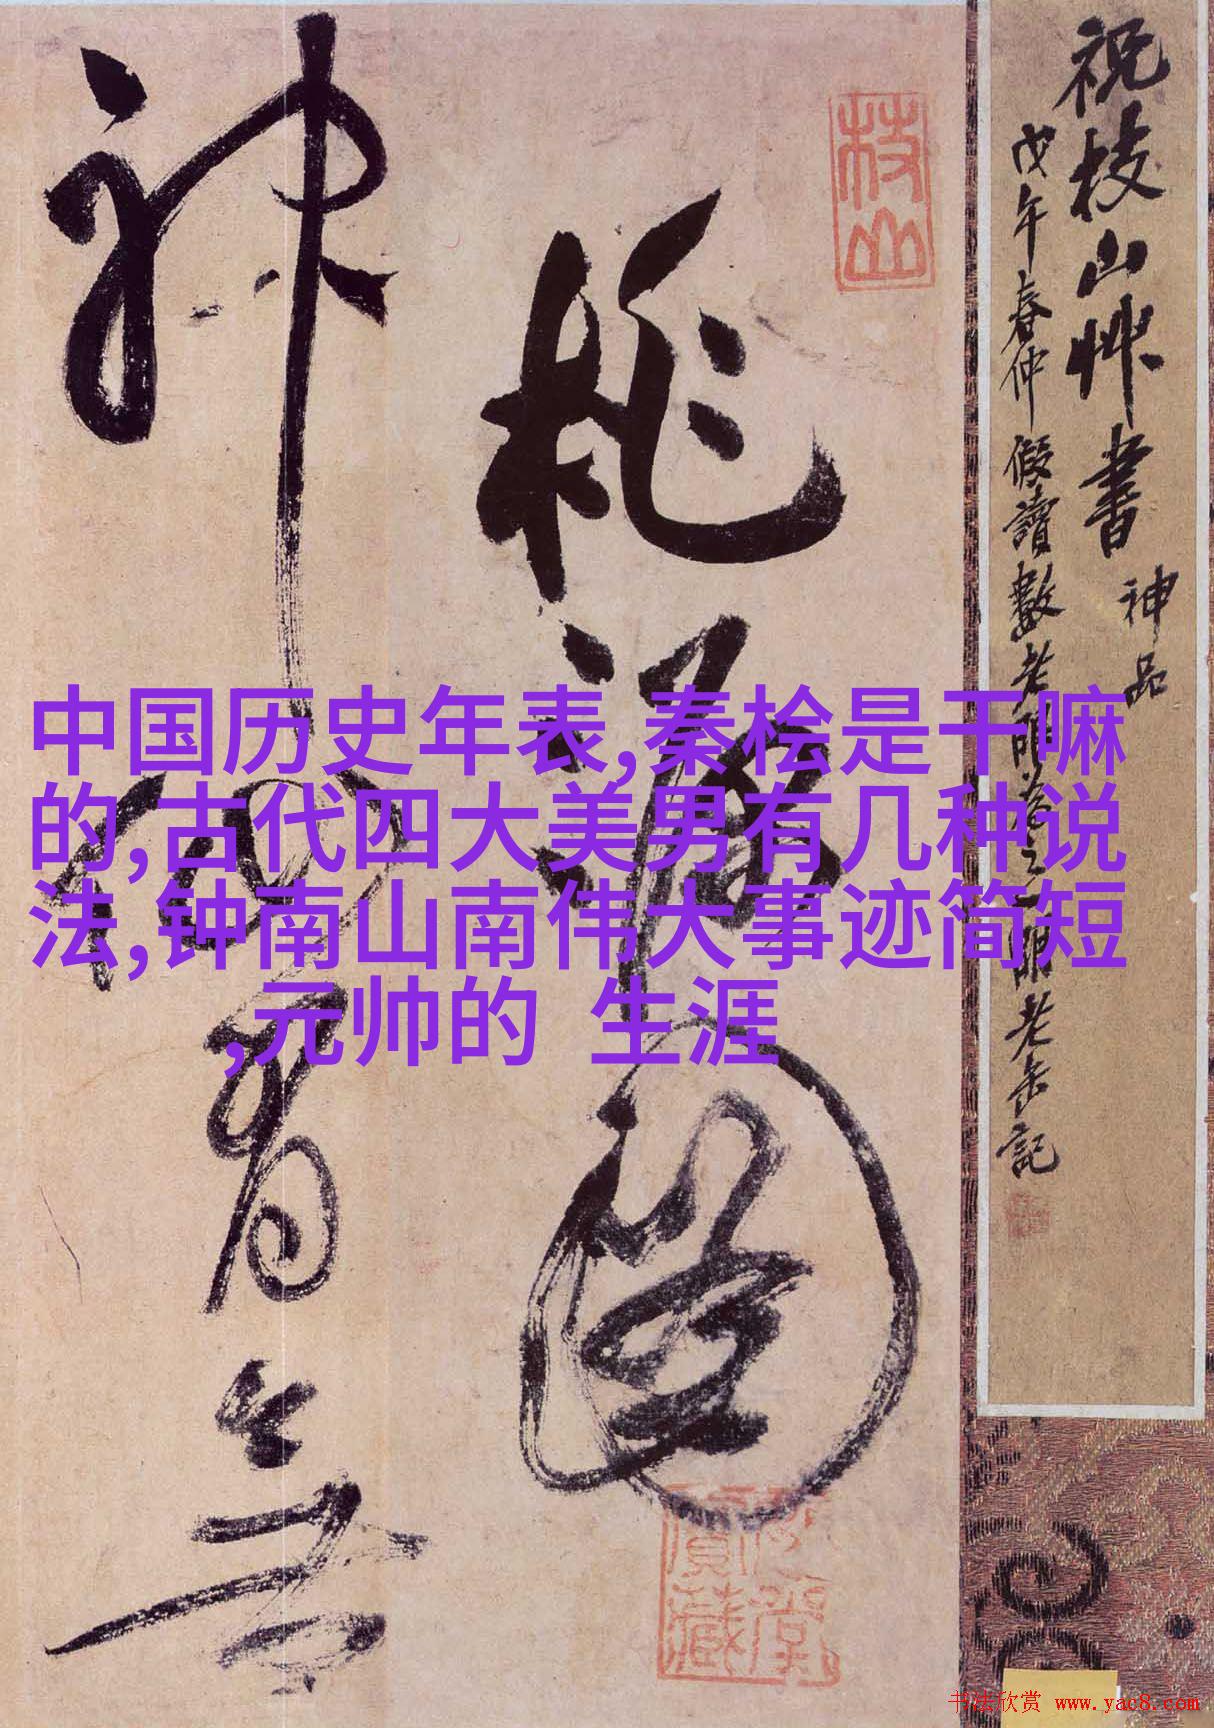 祝枝山艸書 神品
戊午春仲假讀數老
老缶記
枝山
桃源圖
神仙有無
中国历史年表,秦桧是干嘛
的,古代四大美男有几种说
法,钟南山南伟大事迹简短
,元帅的 生涯
书法欣赏 www.yac8.com